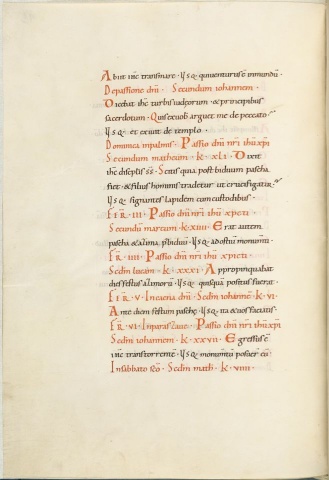 Abiit ihc transmare · Usq · quiuenturus ē inmundū ·
Depassione dn̄i · Secundum iohannem ·
Dicebat ihc turbis iudęorum · & principibus
sacerdotum · Quis exuob arguet me depeccato ·
Usq · et exiuit de templo ·
Dominica inpalmis · Passio dn̄i nr̄i ihū xp̄i
Secundum matheum · k · xli · Dixit
ihc discipłis · Scitis quia post biduum pascha
fiet · & filius hominis tradetur ut crucifigatur ·
Usq · signantes lapidem cumcustodibus ·
Fer · III · Passio dn̄i nr̄i ihū xp̄i
Secundū marcum · k · Erat autem
pascha & azima · biduū · Usq · adostiū monumti ·
Fer · IIII · Passio dn̄i nr̄i ihū xp̄i
Secdm lucam · k · xxxi · Appropinquabat
dies festus azimorū · Usq · positus fuerat ·
Fer · V · Incena dn̄i · Secdm iohannē · k · VI ·
Ante diem festum paschę · Usq · ita & uos faciatis ·
Fer · VI · Passio dn̄i nr̄i ihū xp̄i
Secdm iohannem · k · xxvii · Egressus ē
ihc transtorrentē · Usq · monumtū posuer
Insabbato sc̄o · Secdm math · k · viiii ·